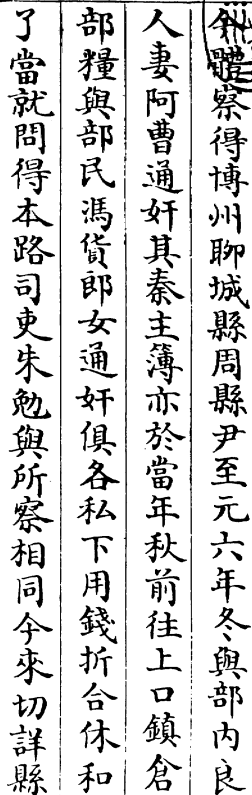 外體察得博州聊城縣周縣尹至元六年冬與部內良
人妻阿曹通奸其秦主簿亦於當年秋前往上口鎮倉
部糧與部民馮貨郎女通奸俱各私下用錢折合休和
了當就問得本路司吏朱勉與所察相同今來切詳縣